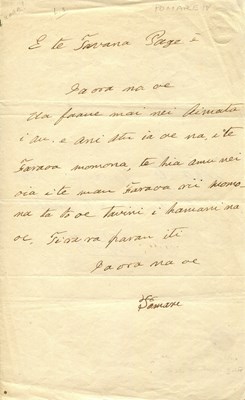 POMARE IV
E te Tavana Page e
Ia ora na oe
Ua faaue mai nei Aimata
i au. e ani atu ia oe na, i te
Faraoa momona, te hia amu nei
oia i te mau Faraoa rii momo
na ta to oe tavini i hamani na
oe. Tirara parau iti
Ia ora na oe
Pomare